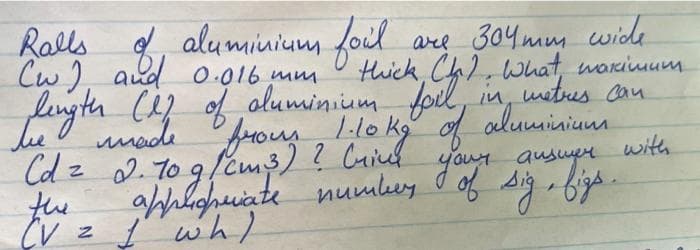 Ralls of aluminium foil are 304 mm wide
(w) and 0.016 mm thick (h). What maximum
length (l) of aluminium foil, in metres can
be made from 1.10 kg of aluminium
(d = 2.70 g/cm3) ? Give your answer with
the appropriate number of sig. figs.
(V = l wh)